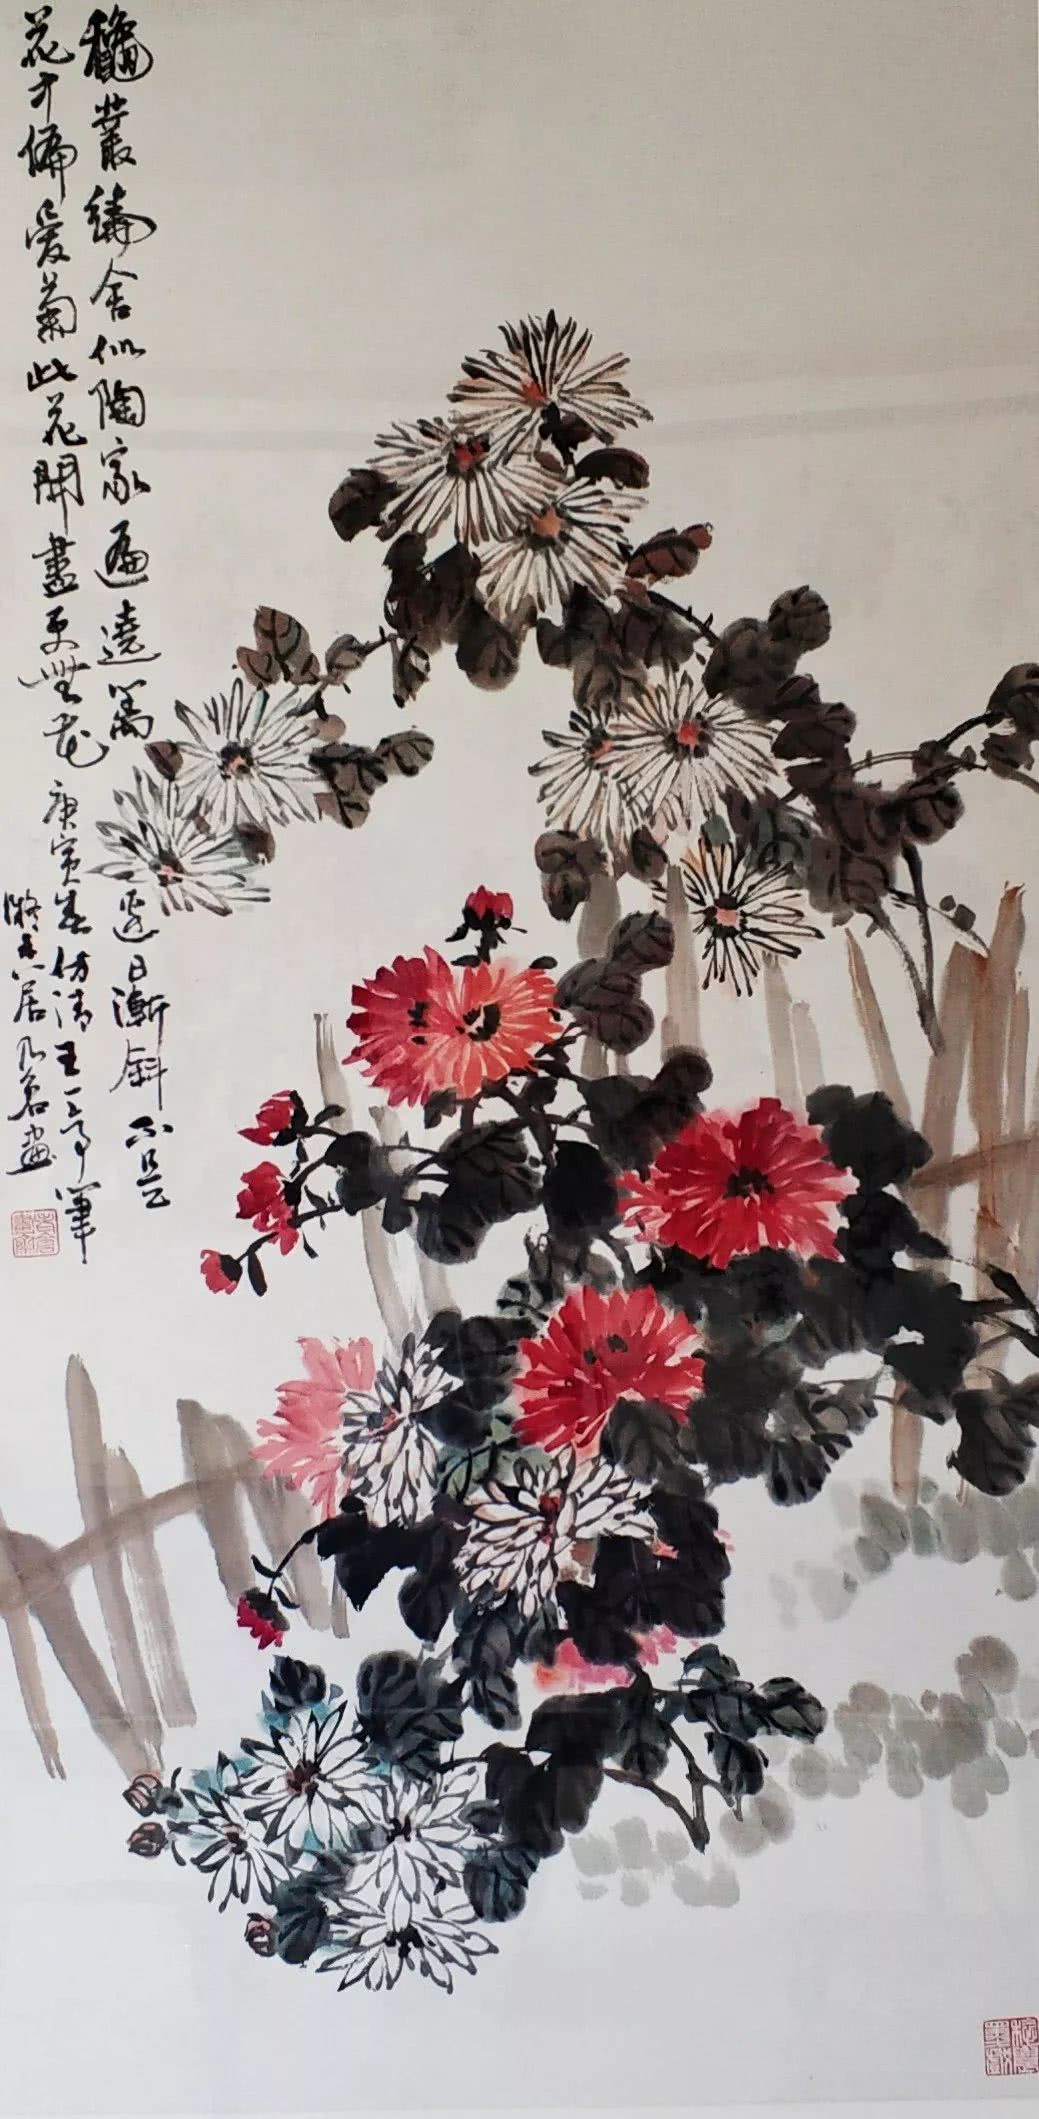 龝叢繞舍似陶家遍遶籬邊日漸斜不是
花中偏愛菊此花開盡更無花 庚寅春仿清王一亭筆
居 畫